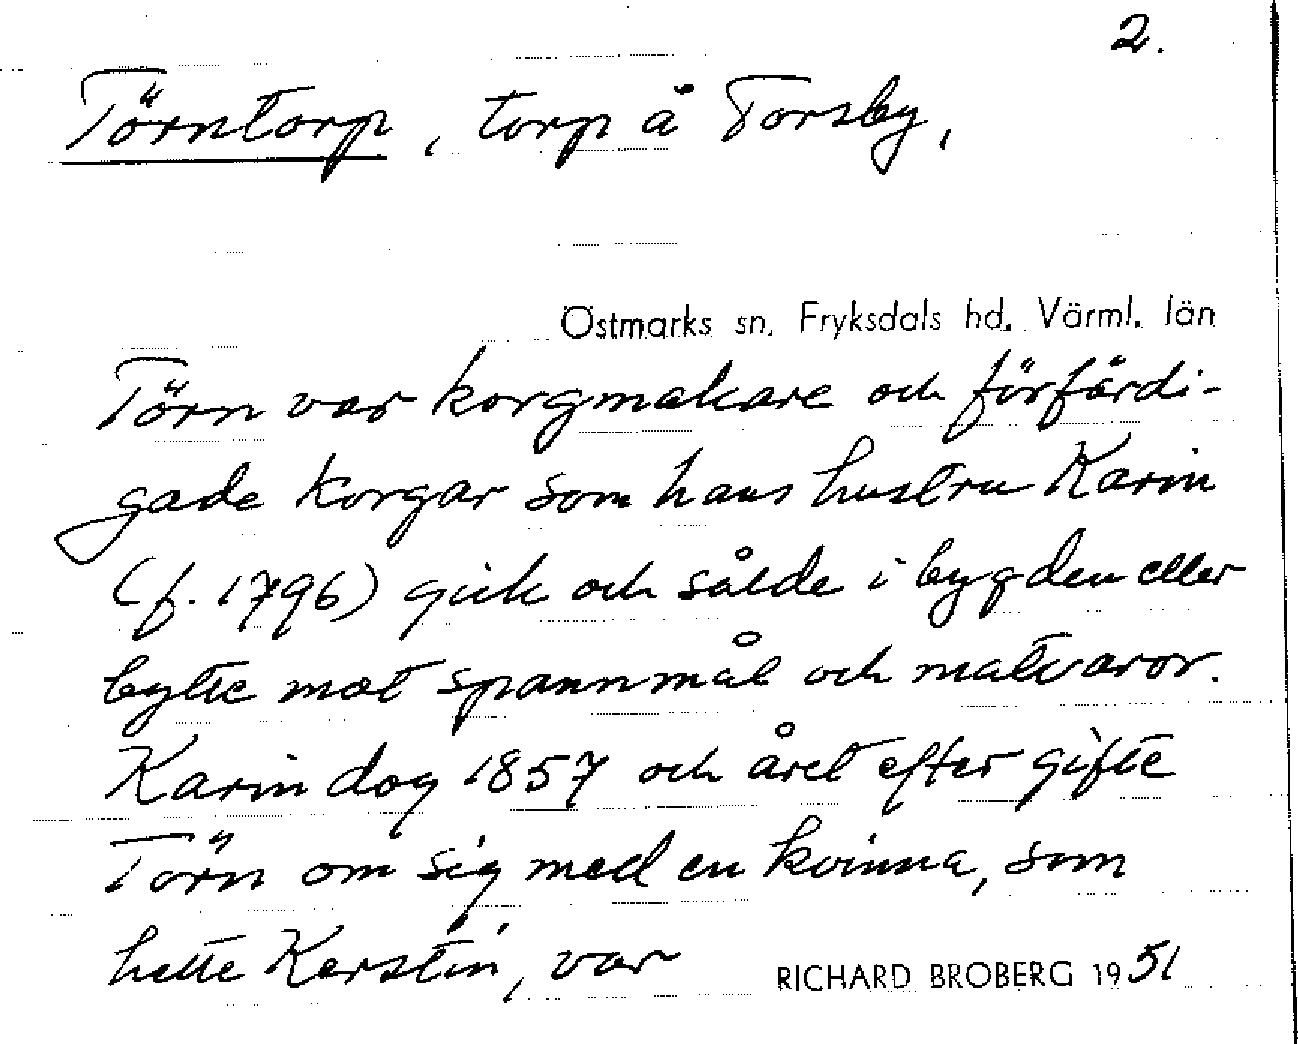 2.
Törntorp, torp å Torsby,
Östmarks sn. Fryksdals hd. Värml. län
Törn var korgmakare och förfärdi-
gade korgar som hans hustru Karin
(f. 1796) gick och sålde i bygden eller
bytte mot spannmål och matvaror.
Karin dog 1857 och året efter gifte
Törn om sig med en kvinna, som
hette Kerstin, var
RICHARD BROBERG 1951